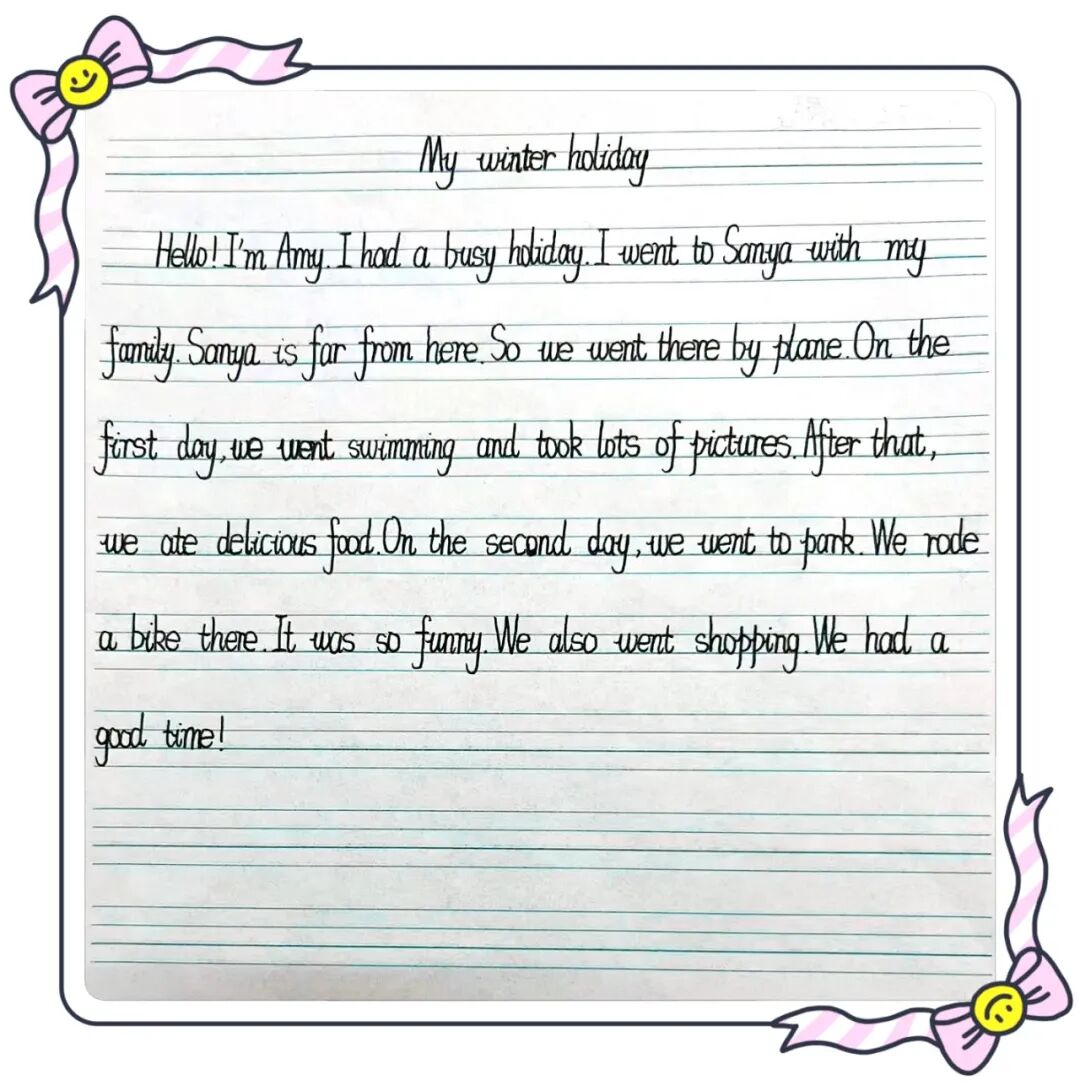 My winter holiday
Hello! I'm Amy. I had a busy holiday. I went to Sanya with my
family. Sanya is far from here. So we went there by plane. On the
first day, we went swimming and took lots of pictures. After that,
we ate delicious food. On the second day, we went to park. We rode
a bike there. It was so funny. We also went shopping. We had a
good time!